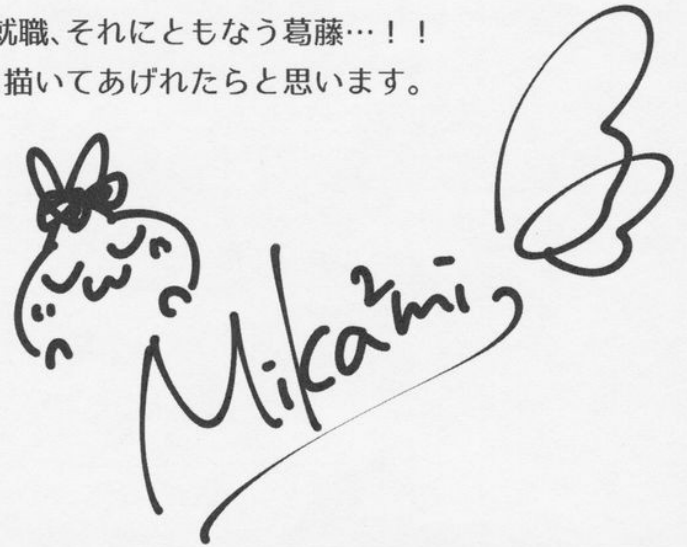 就職、それにともなう葛藤…！！
描いてあげれたらと思います。
Mika²mi